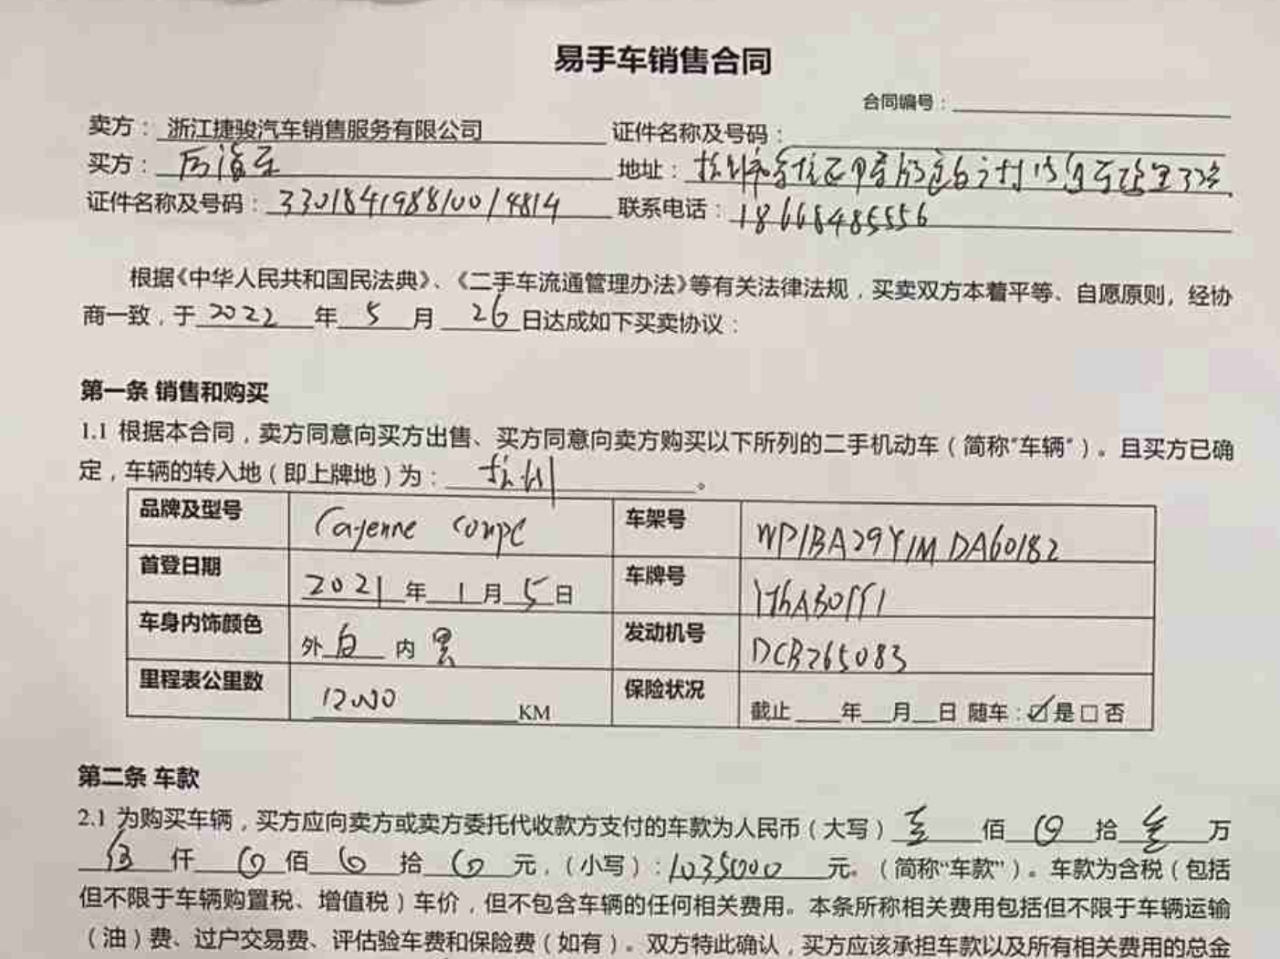 易手车销售合同
合同编号：
卖方：浙江捷骏汽车销售服务有限公司 证件名称及号码：
买方： 地址：
证件名称及号码：330184198810014814 联系电话：18668485556
根据《中华人民共和国民法典》、《二手车流通管理办法》等有关法律法规，买卖双方本着平等、自愿原则，经协
商一致，于2022年5月26日达成如下买卖协议：
第一条 销售和购买
1.1 根据本合同，卖方同意向买方出售、买方同意向卖方购买以下所列的二手机动车（简称“车辆”）。且买方已确
定，车辆的转入地（即上牌地）为：杭州。
品牌及型号 Cayenne Coupe 车架号 WP1BA29Y1MDA60182
首登日期 2021年1月5日 车牌号
车身内饰颜色 外白 内黑 发动机号 DCB265083
里程表公里数 12000 KM 保险状况 截止 年 月 日 随车：☑是□否
第二条 车款
2.1 为购买车辆，买方应向卖方或卖方委托代收款方支付的车款为人民币（大写）壹佰 0 拾 叁 万
伍仟 0 佰 0 拾 0 元，（小写）：1035000 元。（简称“车款”）。车款为含税（包括
但不限于车辆购置税、增值税）车价，但不包含车辆的任何相关费用。本条所称相关费用包括但不限于车辆运输
（油）费、过户交易费、评估验车费和保险费（如有）。双方特此确认，买方应该承担车款以及所有相关费用的总金